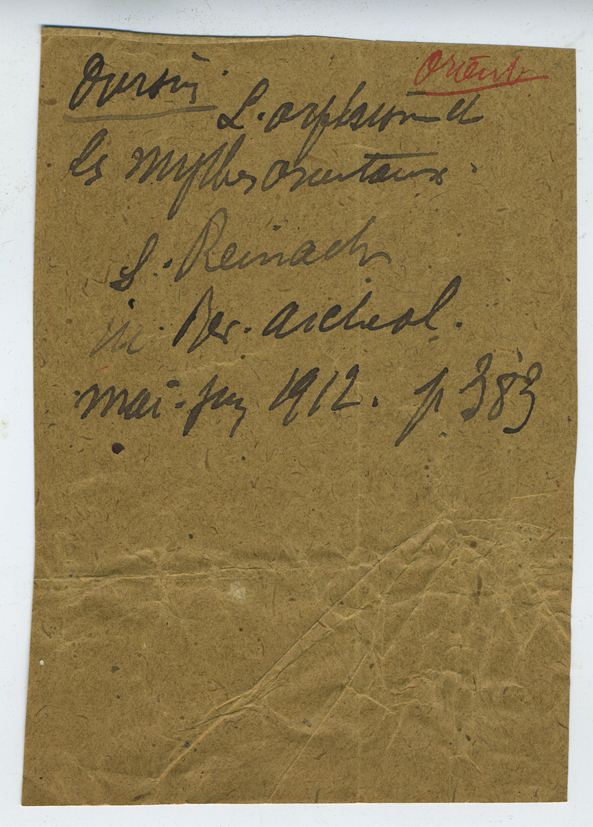 Orient
L'orphisme et
les mythes orientaux.
S. Reinach
in Rev. archeol.
mai-juin 1912. p 383